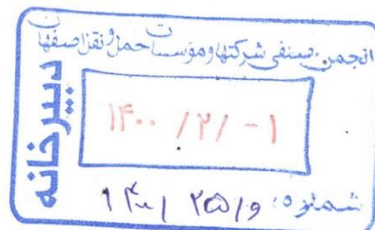 انجمن صنفی شرکتها و مؤسسات حمل و نقل اصفهان
دبیرخانه
۱۴۰۰ /۲/ -۱
شماره: ۱۴۰۰/ ۲۵/و